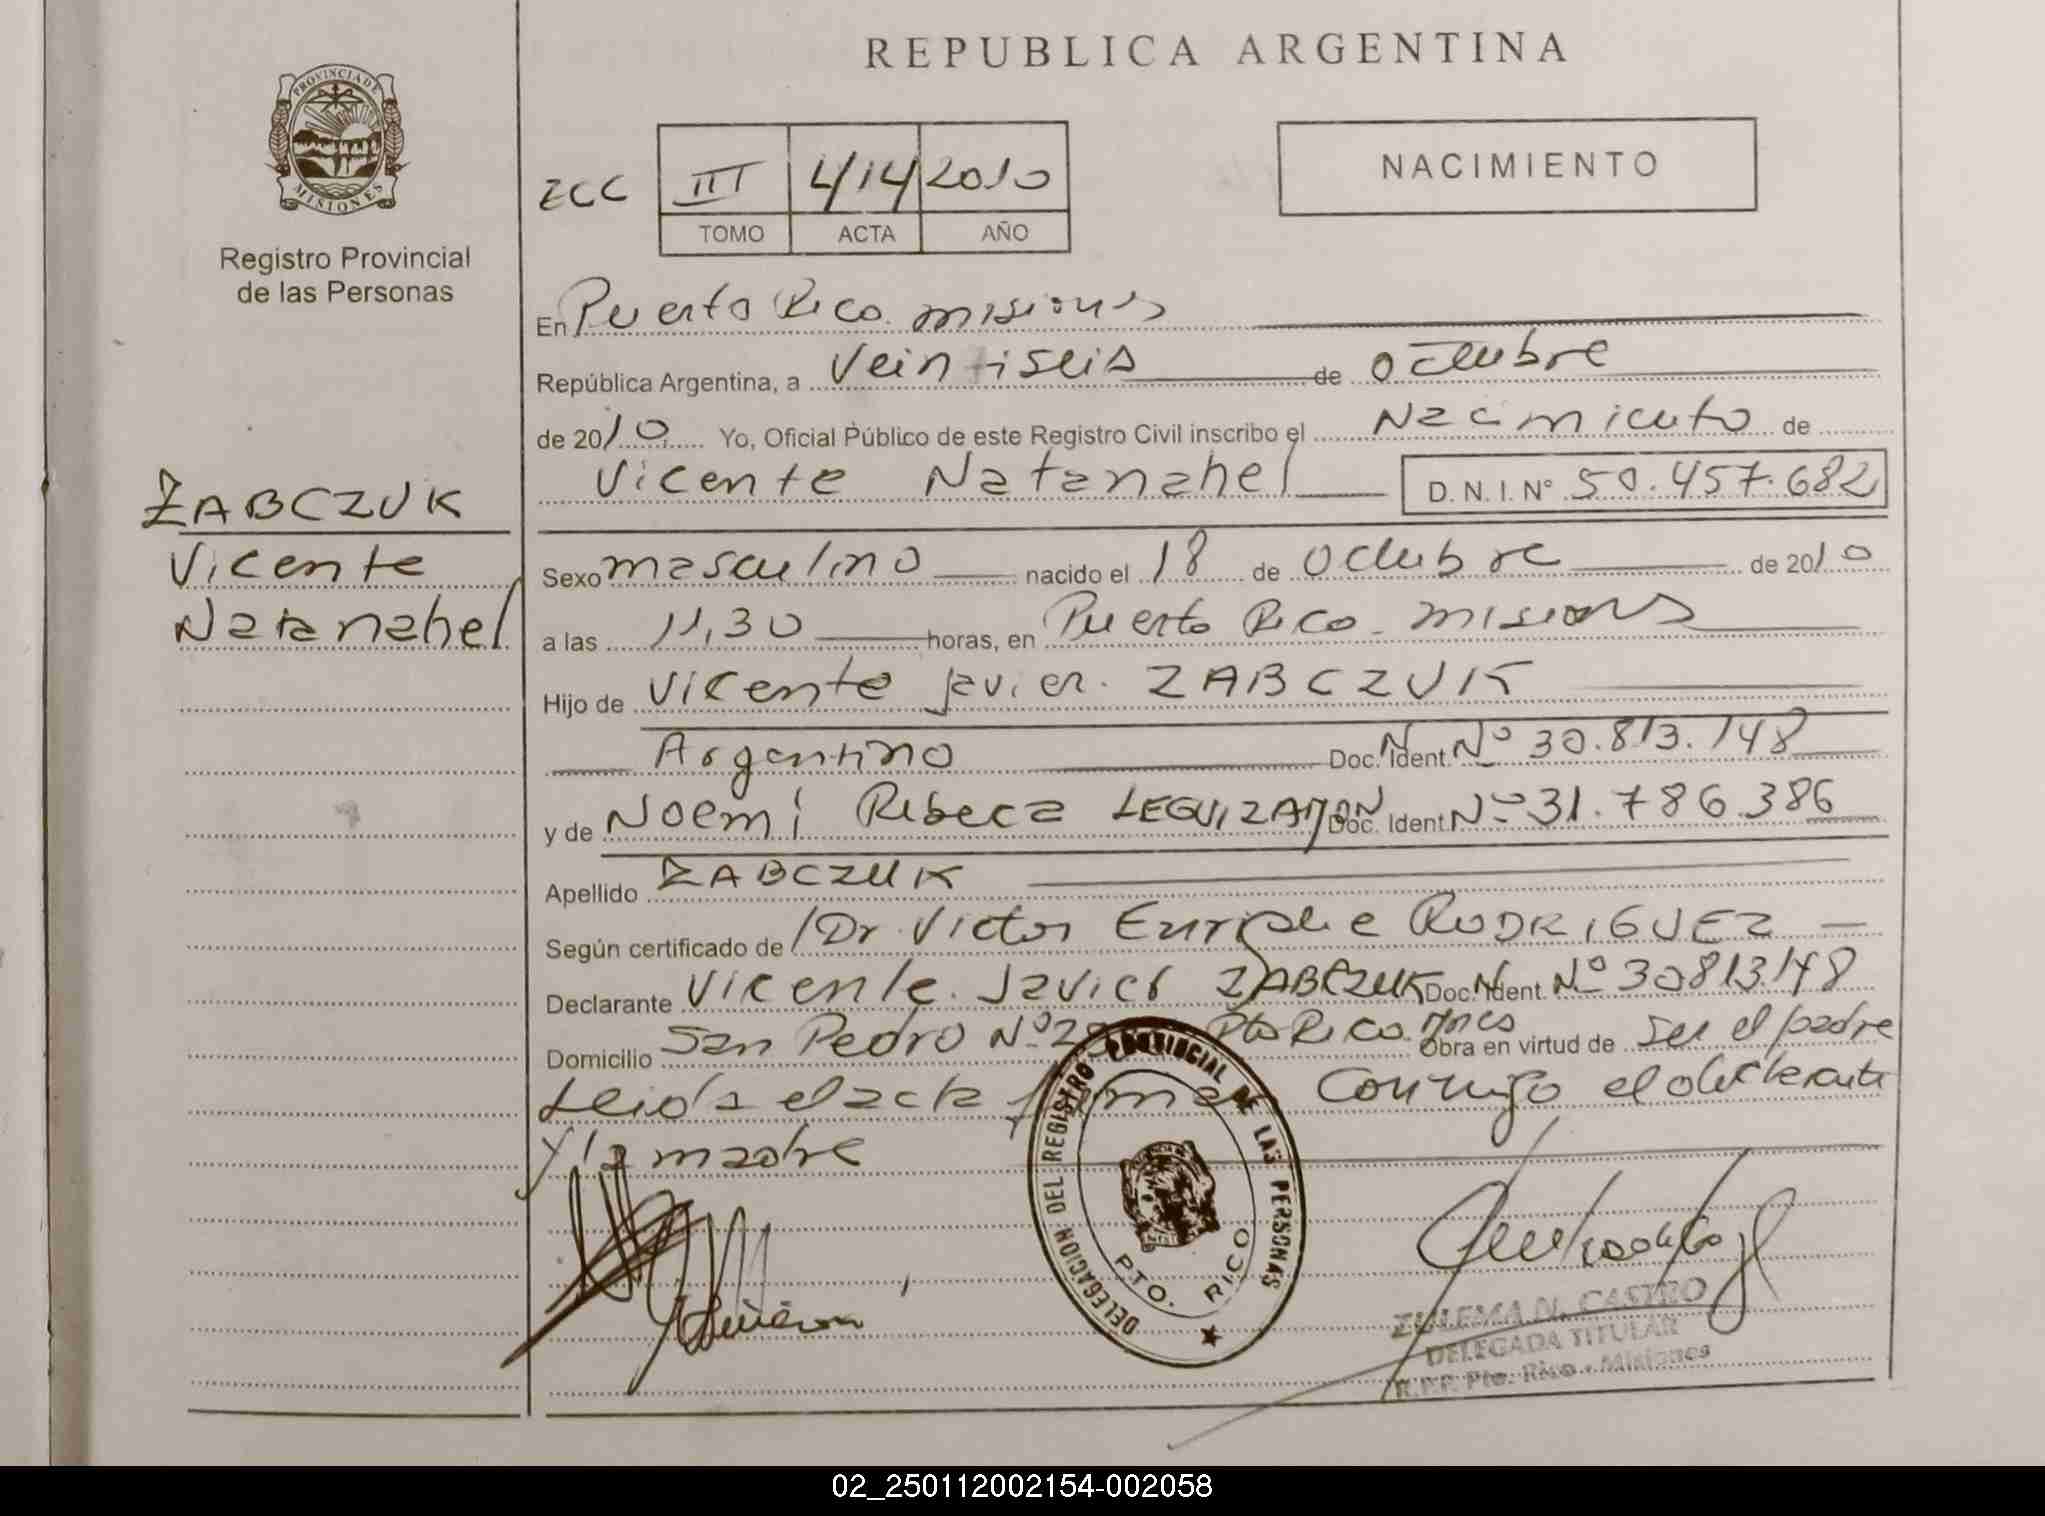 REPUBLICA ARGENTINA
PROVINCIA DE
MISIONES
Registro Provincial
de las Personas
ECC III 414 2010
TOMO ACTA AÑO
NACIMIENTO
En Puerto Rico. misiones
República Argentina, a Veintiseis de octubre
de 2010 Yo, Oficial Público de este Registro Civil inscribo el Nacimiento de
Vicente Natanahel D.N.I. Nº 50.457.682
ZABCZUK
Vicente
Natanahel
Sexo masculino nacido el 18 de octubre de 2010
a las 11,30 horas, en Puerto Rico - misiones
Hijo de Vicente Javier. ZABCZUK
Argentino Doc. N. Ident. Nº 30.813.148
y de Noemi Rebeca LEGUIZAMON Doc. Ident. Nº 31.786.386
Apellido ZABCZUK
Según certificado de Dr. Victor Enrique RODRIGUEZ
Declarante Vicente. Javier ZABCZUK Doc. N. Ident. Nº 30813148
Domicilio San Pedro Nº Pto Rico. Mnes Obra en virtud de ser el padre
Leida el acta firma conmigo el declarante
y la madre
DELEGACION DEL REGISTRO PROVINCIAL DE LAS PERSONAS
PTO. RICO
ZULEMA N. CASTRO
DELEGADA TITULAR
R.P.P. Pto. Rico - Misiones
02_250112002154-002058